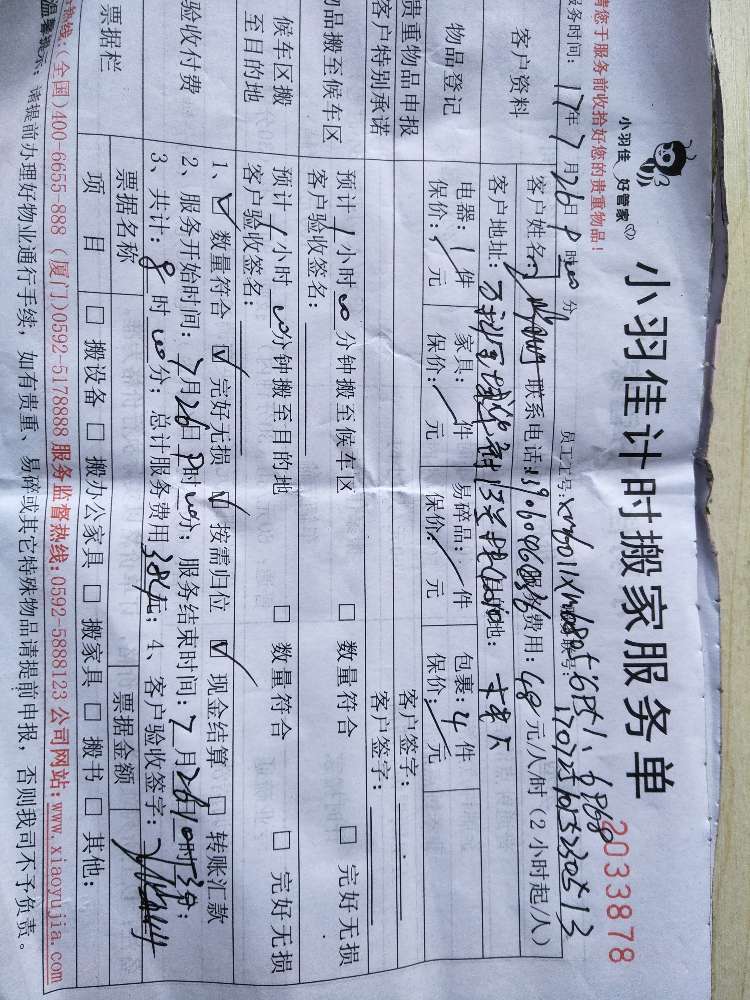 小羽佳 好管家
小羽佳计时搬家服务单
2033878
请您于服务前收拾好您的贵重物品！
员工工号:
服务时间: 17年7月26日 时 分
客户资料
客户姓名: 联系电话: 服务费用: 48 元/人/时（2小时起/人）
客户地址:
物品登记
电器: 1 件 家具: 件 易碎品: 件 包裹: 4 件
保价: 元 保价: 元 保价: 元 保价: 元
贵重物品申报
客户签字:
客户特别承诺
客户签字:
物品搬至候车区
预计 1 小时 00 分钟搬至候车区 □ 数量符合 □ 完好无损
客户验收签名:
候车区搬至目的地
预计 1 小时 00 分钟搬至目的地 □ 数量符合 □ 完好无损
客户验收签名:
验收付费
1、☑ 数量符合 ☑ 完好无损 ☑ 按需归位 ☑ 现金结算 □ 转账汇款
2、服务开始时间: 7月26日 时 00分; 服务结束时间: 7月26日10时 分;
3、共计: 8 时 00 分; 总计服务费用 384 元; 4、客户验收签字:
票据栏
票据名称 票据金额
项目 □ 搬设备 □ 搬办公家具 □ 搬家具 □ 搬书 □ 其他:
热线:(全国)400-6655-888 (厦门)0592-5178888 服务监督热线:0592-5888123 公司网站:www.xiaoyujia.com
温馨提示: 请提前办理好物业通行手续，如有贵重、易碎或其它特殊物品请提前申报，否则我司不予负责。